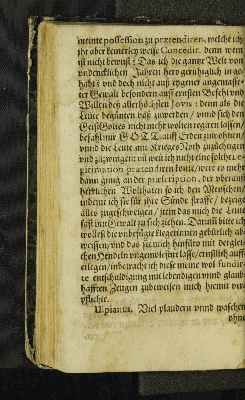 meinte possession zu prætendiren, welche ich
ihr aber keinerley weise Concedir. denn wem
ist nicht bewust? Das ich die gantze Welt von
undencklichen Jahren hero geruhiglich in ge-
habt? und doch nicht auß eygener angemaste-
ter Gewalt besondern auß ernsten Befehl und
Willen deß allerhöchsten Jovis: denn als die
Leute begunten böß zuwerden / vnnd sich den
Geist Gottes nicht mehr wolten regiren lassen /
befahl mir GOTT auff Erden zuwohnen /
vnnd die Leute mit Krieges Noth zuzüchtigen
vnd zuzwingen: vñ wen ich nicht eine solche
dann ging an der præscription, der uberauß
herrlichen Wolthaten so ich den Menschen /
indem ich sie für ihre Sünde straffe / bezeige
alles zugeschweigen / item das mich die Leute
fast mit Gewalt zu sich ziehen. Darumb bitte ich
wollest die unbefugte Klägerinnen gebürlich ab-
weisen / vnd das sie mich hinfüro mit dergleis
chen Händeln unmolestirt lasse / ernstlich auff-
erlegen / inbetracht ich diese meine wol fundir-
te entschuldigung mit lebendigen vnnd glaub-
hafften Zeugen zubeweisen mich hiemit ver-
pflichte.
Ulpianus. Viel plaudern vnnd waschen
ohne